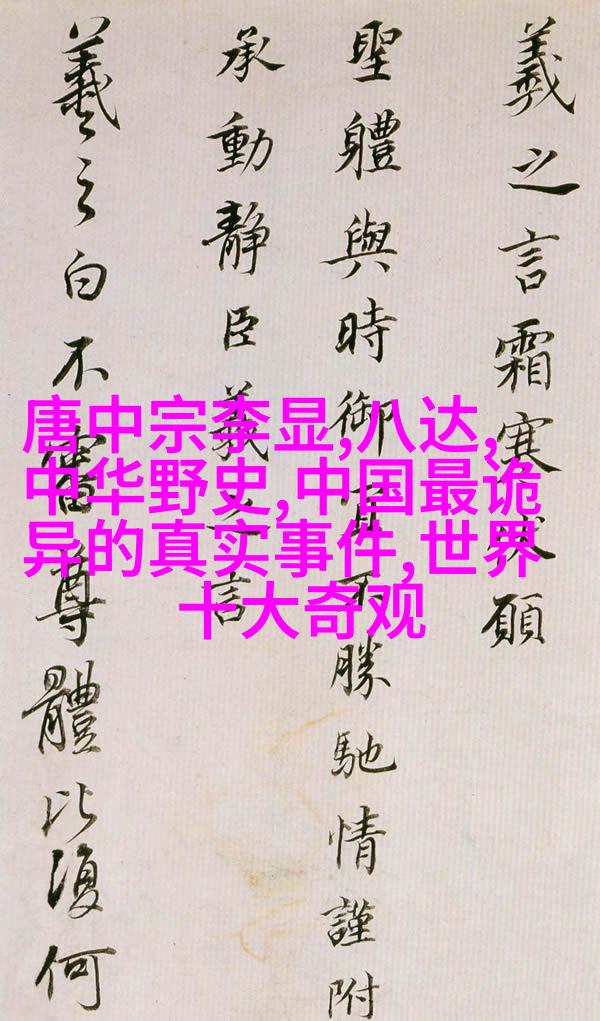 羲之言霜寒伏願
聖體與時御宜不勝馳情謹附
承動靜臣羲之言
羲之白不審尊體比復何
唐中宗李显,八达,
中华野史,中国最诡
异的真实事件,世界
十大奇观